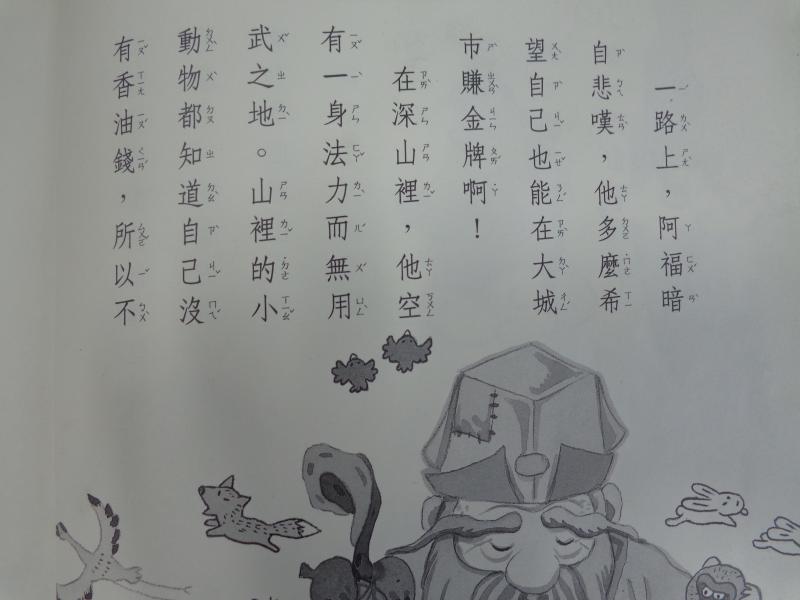 一路上，阿福暗
自悲嘆，他多麼希
望自己也能在大城
市賺金牌啊！
在深山裡，他空
有一身法力而無用
武之地。山裡的小
動物都知道自己沒
有香油錢，所以不